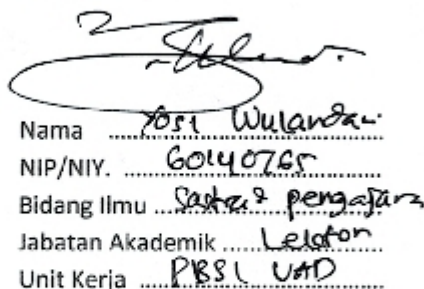 Nama Yosi Wulandari
NIP/NIY. 60140765
Bidang Ilmu Sastra & pengajaran
Jabatan Akademik Lektor
Unit Kerja PBSI UAD